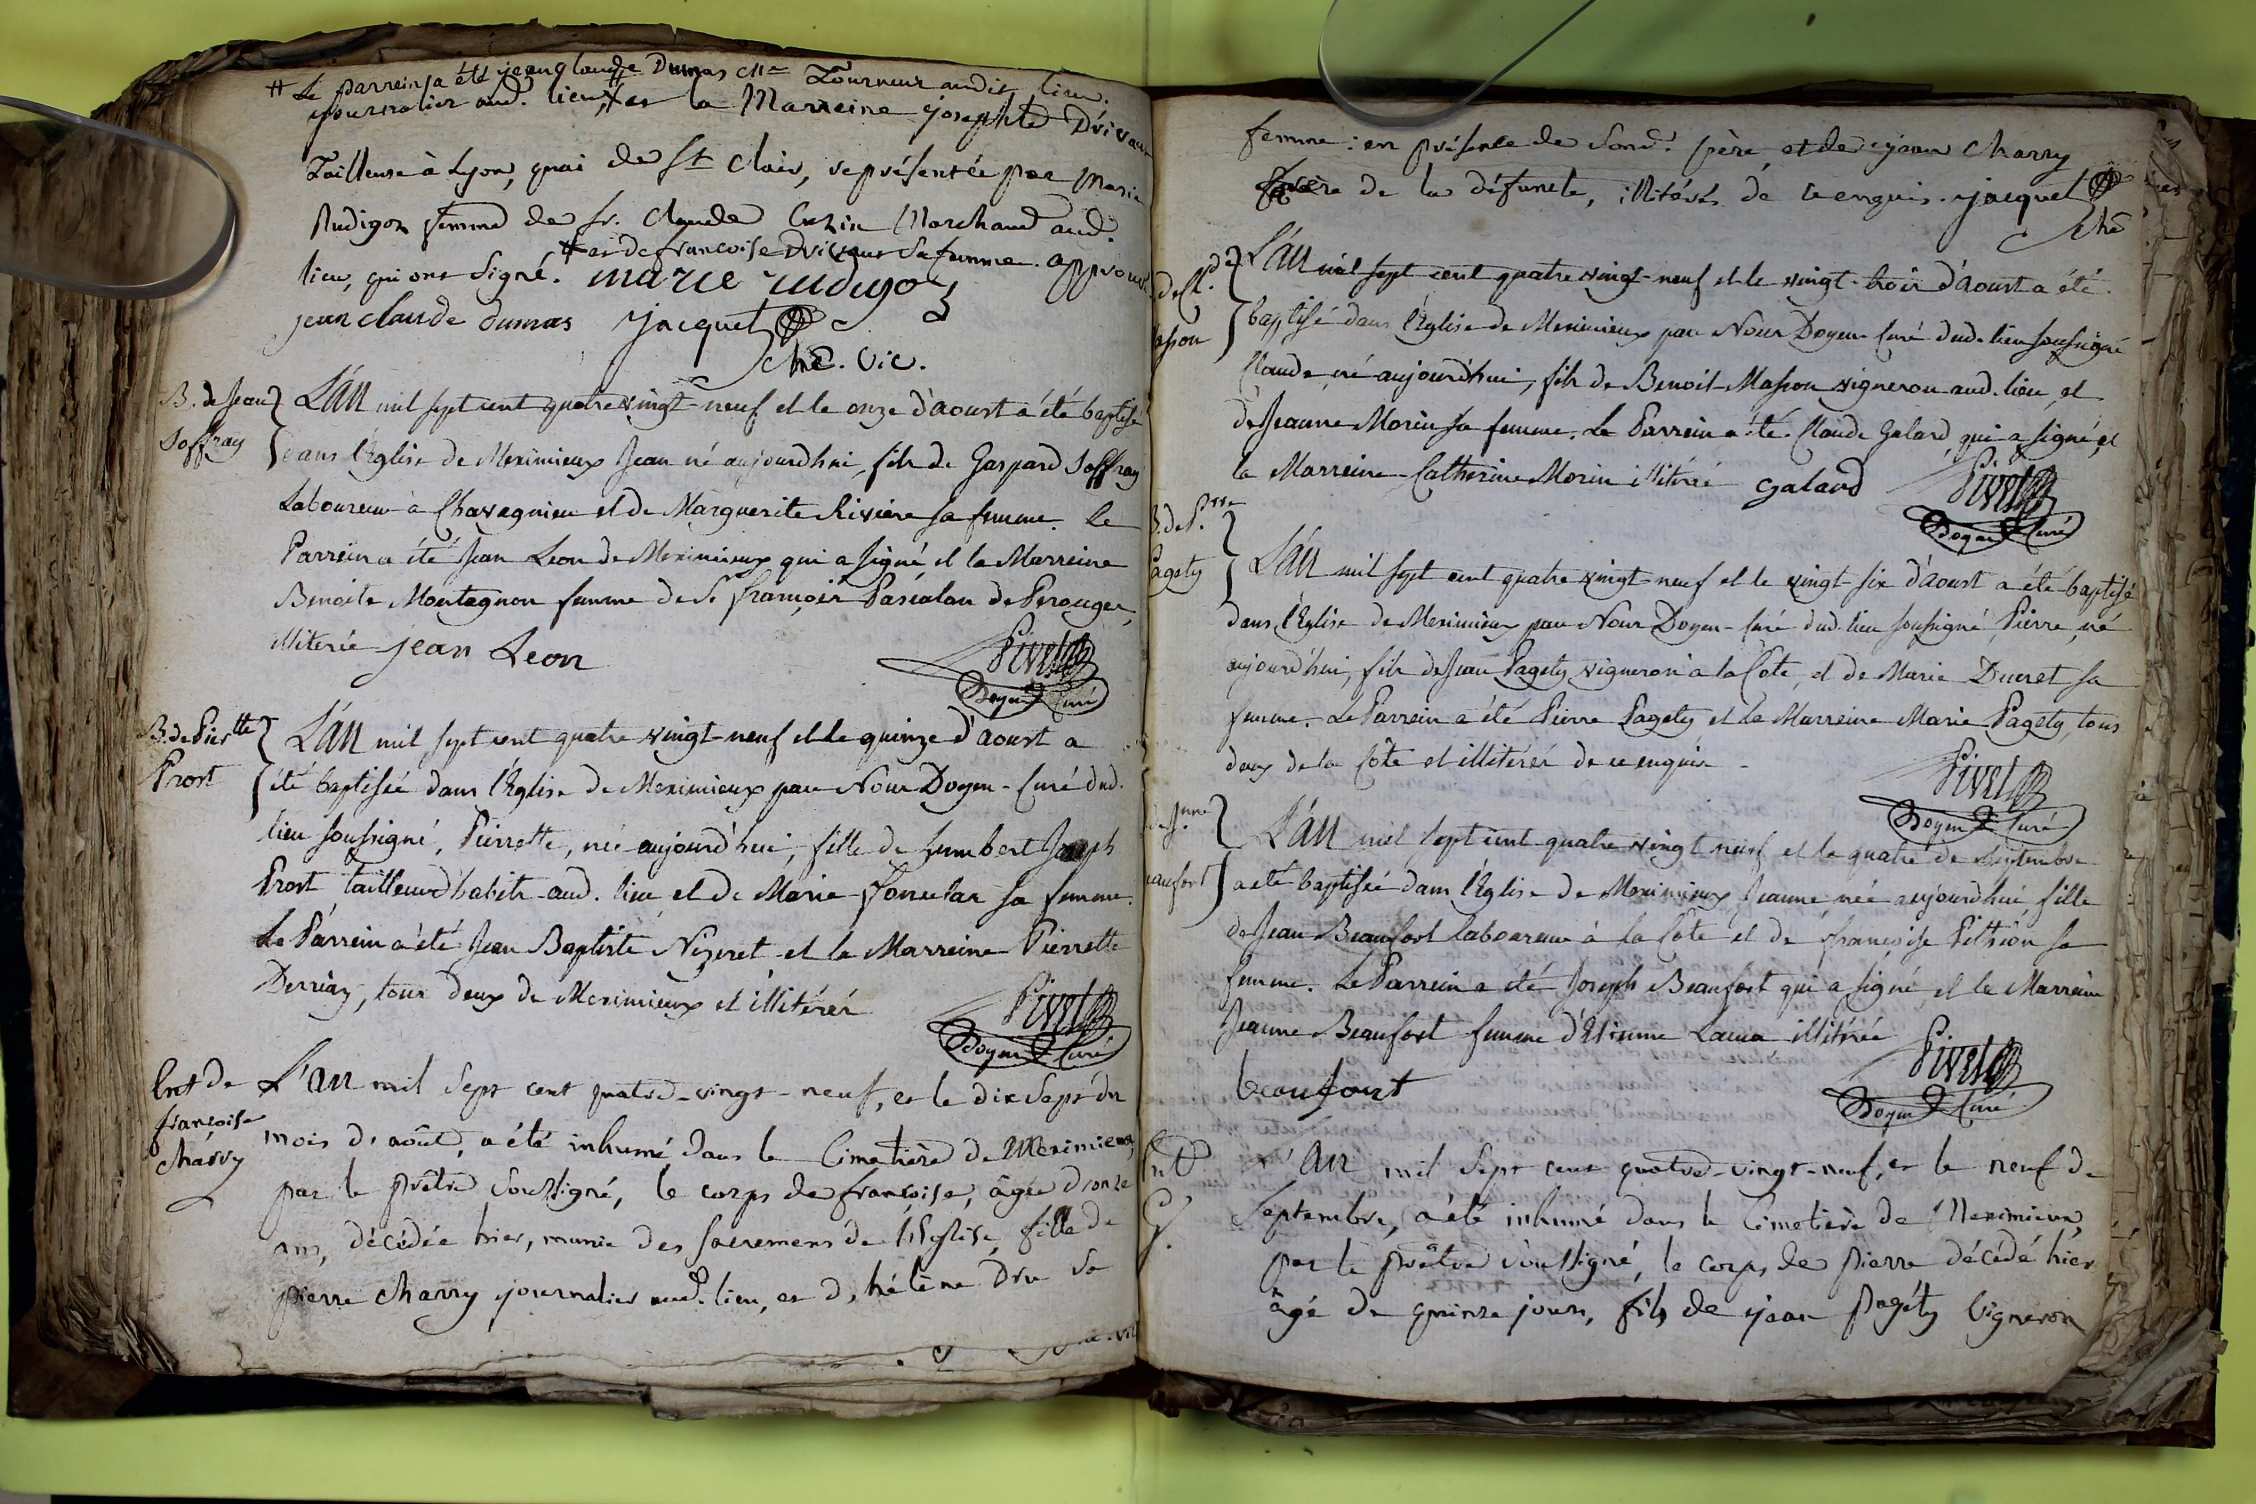 # Le parrein a été jean Claude Dumas Me Tourneur audit lieu.
journalier aud. lieu # et la Marreine josephte Drivau
Tailleuse à Lyon, quai de St Clair, représentée par Marie
Rudigoz femme de sr. Claude Cuzin Marchand aud.
# et de francoise Drivaux Sa femme. approuv
lieu, qui ont Signé. marie rudigoz
jean claude dumas jacquet
che. vic.
B. de Jean
Joffray
L'an mil sept cent quatre vingt-neuf et le onze d'aoust a été baptisé
dans l'église de Meximieux Jean né aujourdhui, fils de Gaspard Joffray
Laboureur à Chavagnieu et de Marguerite Riviere sa femme. Le
Parrein a été Jean Leon de Meximieux qui a signé et la Marreine
Benoite Montagnon femme de Sr françois Pascalon de Perouges,
illiterée jean Leon
Pivet
Doyen Curé
B. de Pierrtte
Prost
L'an mil sept cent quatre vingt-neuf et le quinze d'aoust a
été baptisée dans l'église de Meximieux par Nous Doyen-Curé dud.
lieu soussigné, Pierrette, née aujourd'hui, fille de humbert Joseph
Prost tailleur d'habits aud. lieu et de Marie sa femme.
Le Parrein a été Jean Baptiste Nizeret et la Marreine Pierrette
Derriaz, tous deux de Meximieux et illitérés
Pivet
Doyen Curé
Ent de
françoise
Charry
L'an mil Sept cent quatre-vingt-neuf, et le dix Sept du
mois d'août, a été inhumé dans le Cimetière de Meximieux,
par le prêtre soussigné, le corps de françoise, âgée d'onze
ans, décédée hier, munie des sacremens de l'Eglise, fille de
pierre charry journalier aud. lieu, et d'hélène Dru sa
femme: en présence de sond. père, et de jean Charry
frère de la défuncte, illitérés de ce enquis. jacquet
che
B. de Cl.de
Masson
L'an mil sept cent quatre vingt-neuf et le vingt-trois d'aoust a été
baptisé dans l'église de Meximieux par Nous Doyen Curé dud. lieu soussigné
Claude né aujourd'hui, fils de Benoit Masson vigneron aud. lieu, et
de Jeanne Morin sa femme. Le Parrein a été Claude Galard qui a signé, et
la Marreine Catherine Morin illitérée galard
Pivet
Doyen Curé
B. de P.rre
Pagety
L'an mil sept cent quatre vingt-neuf et le vingt-six d'aoust a été baptisé
dans l'Eglise de Meximieux par Nous Doyen-Curé dud. lieu soussigné Pierre, né
aujourd'hui, fils de Jean Pagety vigneron à la Côte, et de Marie Ducret sa
femme. Le Parrein a été Pierre Pagety et la Marreine Marie Pagety, tous
deux de la Côte et illitérés de ce enquis
Pivet
Doyen Curé
de J.nne
eaufort
L'an mil sept cent quatre vingt neuf et le quatre de septembre
a été baptisée dans l'Eglise de Meximieux Jeanne née aujourdhui fille
de Jean Beaufort Laboureur à la Côte et de françoise Pithion sa
femme. Le Parrein a été Joseph Beaufort qui a signé et la Marreine
Jeanne Beaufort femme d'Etienne illitérée
beaufourt
Pivet
Doyen Curé
Ent
L'an mil Sept cent quatre-vingt-neuf, et le neuf de
Septembre, a été inhumé dans le Cimetière de Meximieux,
par le prêtre soussigné, le corps de pierre décédé hier
âgé de quinze jours, fils de jean pagéty Vigneron